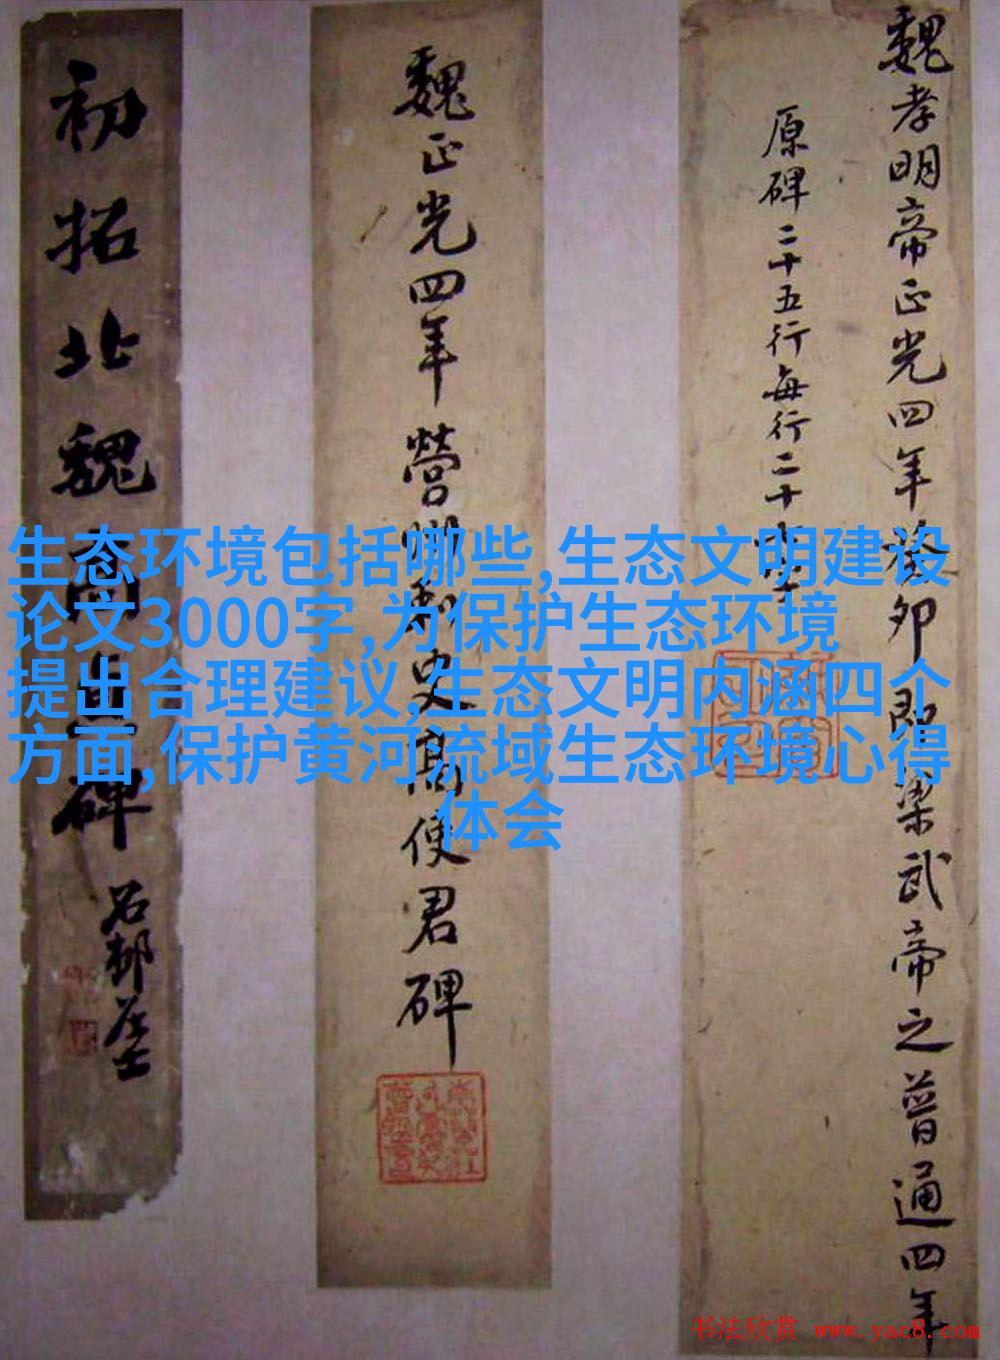 魏孝明帝正光四年癸卯即梁武帝之普通四年
原碑二十五行每行二十
魏正光四年營州刺史高使君碑
初拓北魏高貞碑
石邨居士
生态环境包括哪些,生态文明建设
论文3000字,为保护生态环境
提出合理建议,生态文明内涵四个
方面,保护黄河流域生态环境心得
体会
书法欣赏 www.yac8.com